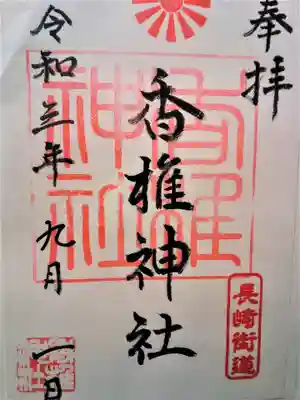 奉拝
香椎神社
令和三年九月一日
長崎街道
香椎神社